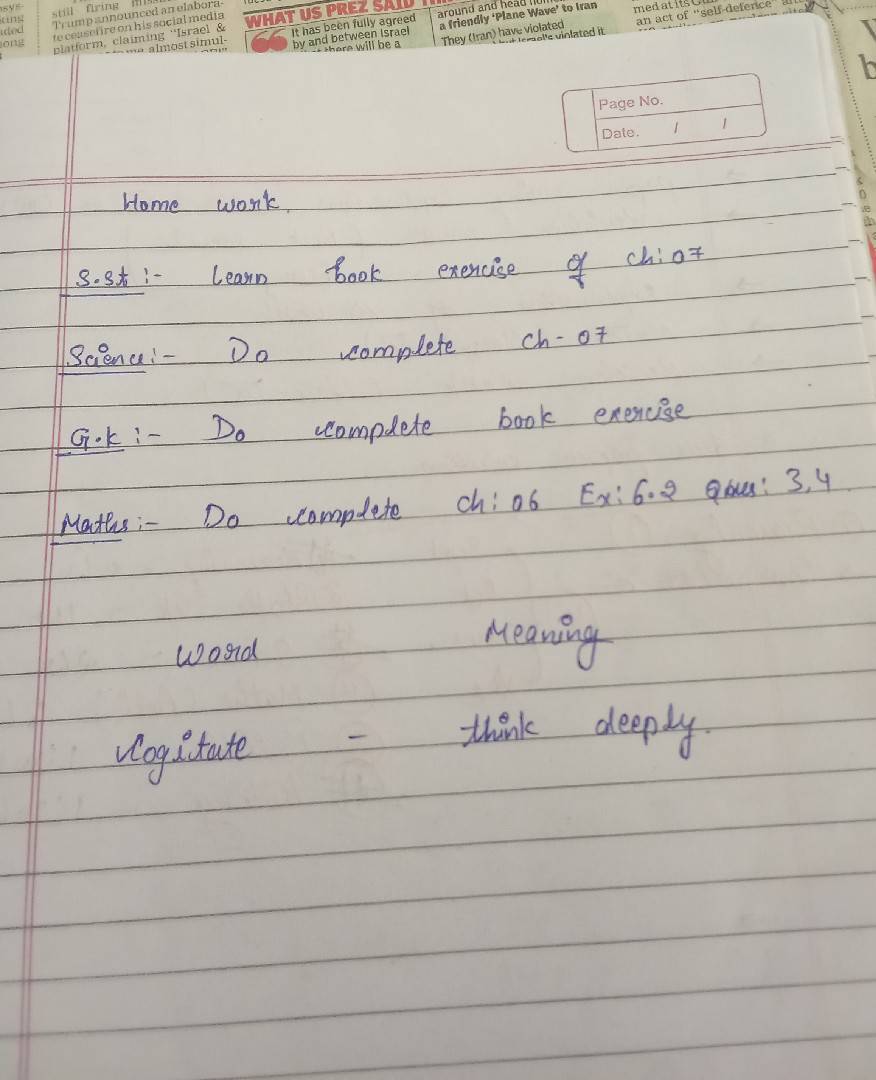 still firing
Trump announced an elabora-
te ceasefire on his social media
platform, claiming "Israel &
almost simul-
WHAT US PREZ SAID
It has been fully agreed
by and between Israel
there will be a
around and head
a friendly 'Plane Wave' to Iran
They (Iran) have violated
Israel's violated it
an act of "self-defence"
Page No.
Date. / /
Home work.
S.St :- Learn book exercise of ch: 07
Science :- Do complete ch - 07
G.K :- Do complete book exercise
Maths :- Do complete ch: 06 Ex: 6.2 Ques: 3,4
Word Meaning
Cogitate - think deeply.